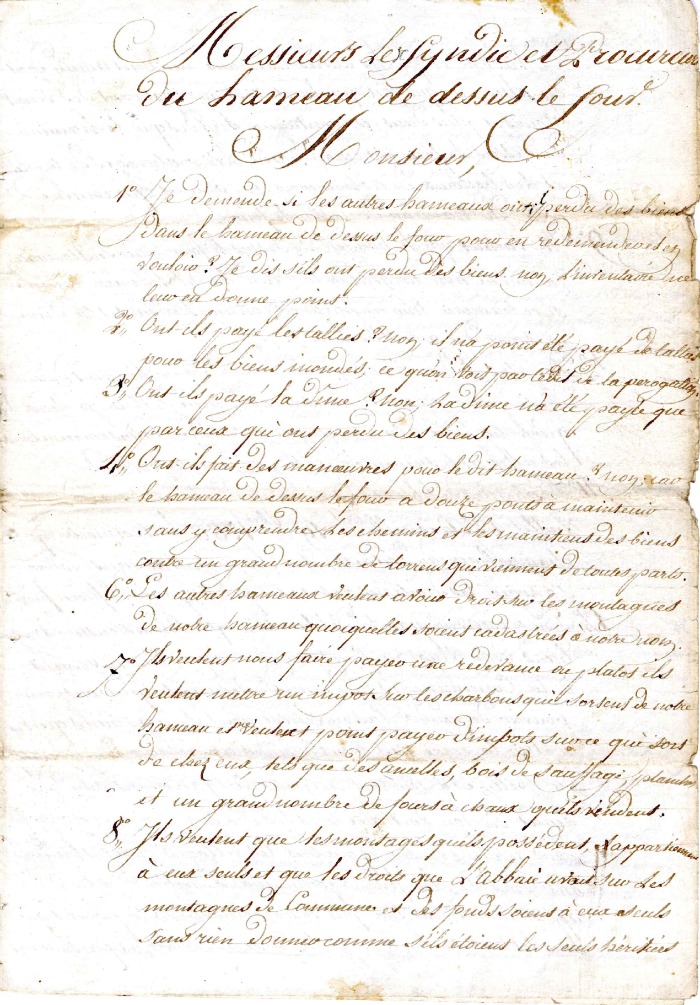 Messieurs Les Syndic et Procureur
du hameau de dessus le four.
Monsieur,
1° Je demende si les autres hameaux ont perdu des biens
dans le hameau de dessus le four pour en redemender et en
vouloir? Je dis s'ils ont perdu des biens non, L'inventaire ne
leur en donne point.
2° Ont ils payé les tallies? non, il n'a point été payé de tallie
pour les biens inondés, ce qu'on voit par l'edit de la perogation
3° Ont ils payé la dime? non; La dime n'a été payée que
par ceux qui ont perdu des biens.
4° Ont-ils fait des manœuvres pour le dit hameau? non, car
le hameau de dessus le four a douze ponts à maintenir
sans y comprendre les chemins et les maintiens des biens
contre un grand nombre de torrens qui viennent de toutes parts.
6° Les autres hameaux veulent avoir droit sur les montagnes
de notre hameau quoiquelles soient cadastrées à notre nom.
7° Ils veulent nous faire payer une redevance ou platot ils
veulent metre un impot sur les charbons qui sortent de notre
hameau et veulent point payer d'impots sur ce qui sort
de chez eux, tels que des ancelles, bois de sauffage, planches
et un grand nombre de fours à chaux qu'ils vendent.
8° Ils veulent que les montages qu'ils possèdent, appartiennent
à eux seuls et que les droits que L'abbaie avait sur Les
montagnes de Commune et des fonds soient à eux seuls
sans rien donner comme s'ils étoient les seuls héritiers